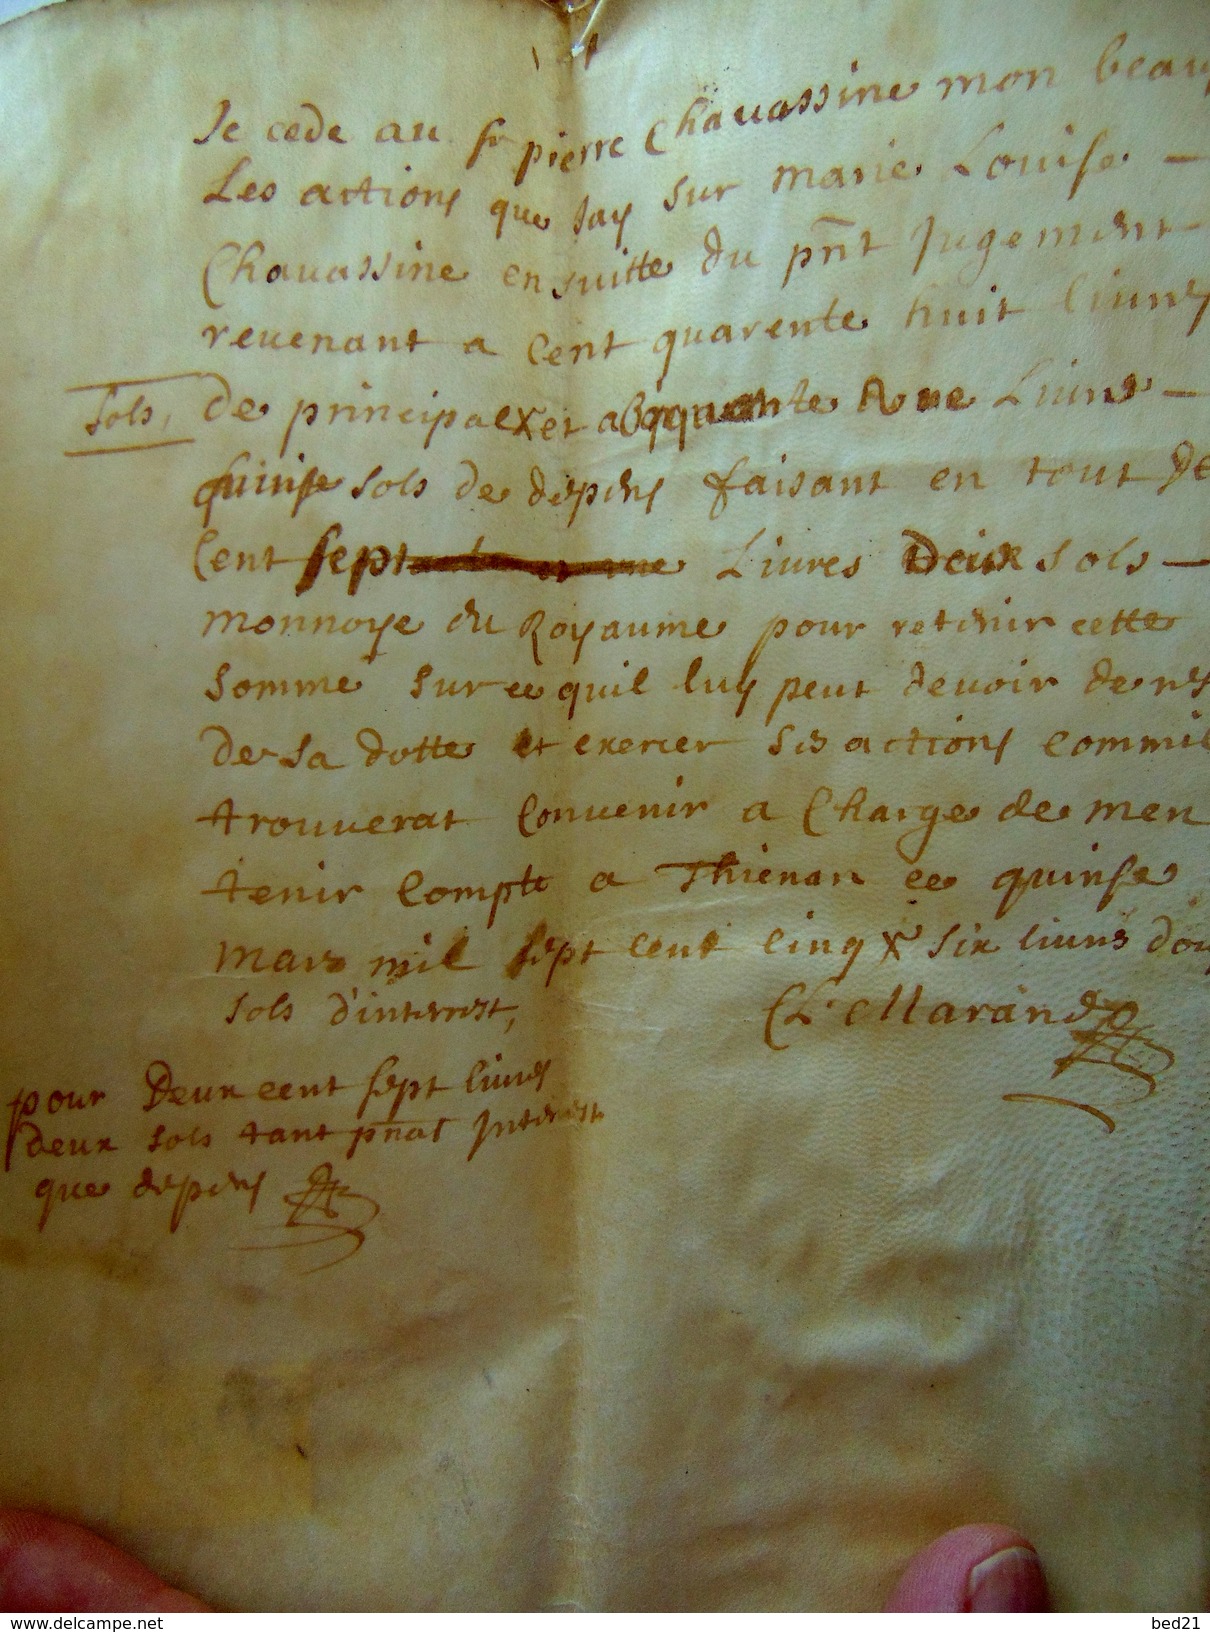 Je cede au sr pierre Chauassine mon beau
Les actions que Jay sur marie Louise -
Chauassine ensuitte du pnt Jugement
reuenant a Cent quarente huit liures
Sols, de principal X et a Liures -
quinse sols de depens faisant en tout de
Cent sept Liures Deux sols -
monnoye du Royaume pour retenir cette
somme sur ce quil luy peut deuoir de res
de sa dotte et exercer ses actions comme il
trouuerat Conuenir a Charge de men
tenir Compte a Thienan ce quinse
mars mil sept cent cinq X six liures dou
sols d'interest,
CL. Marando
pour Deux cent sept liures
deux sols tant pnal Interest
que depens
www.delcampe.net
bed21